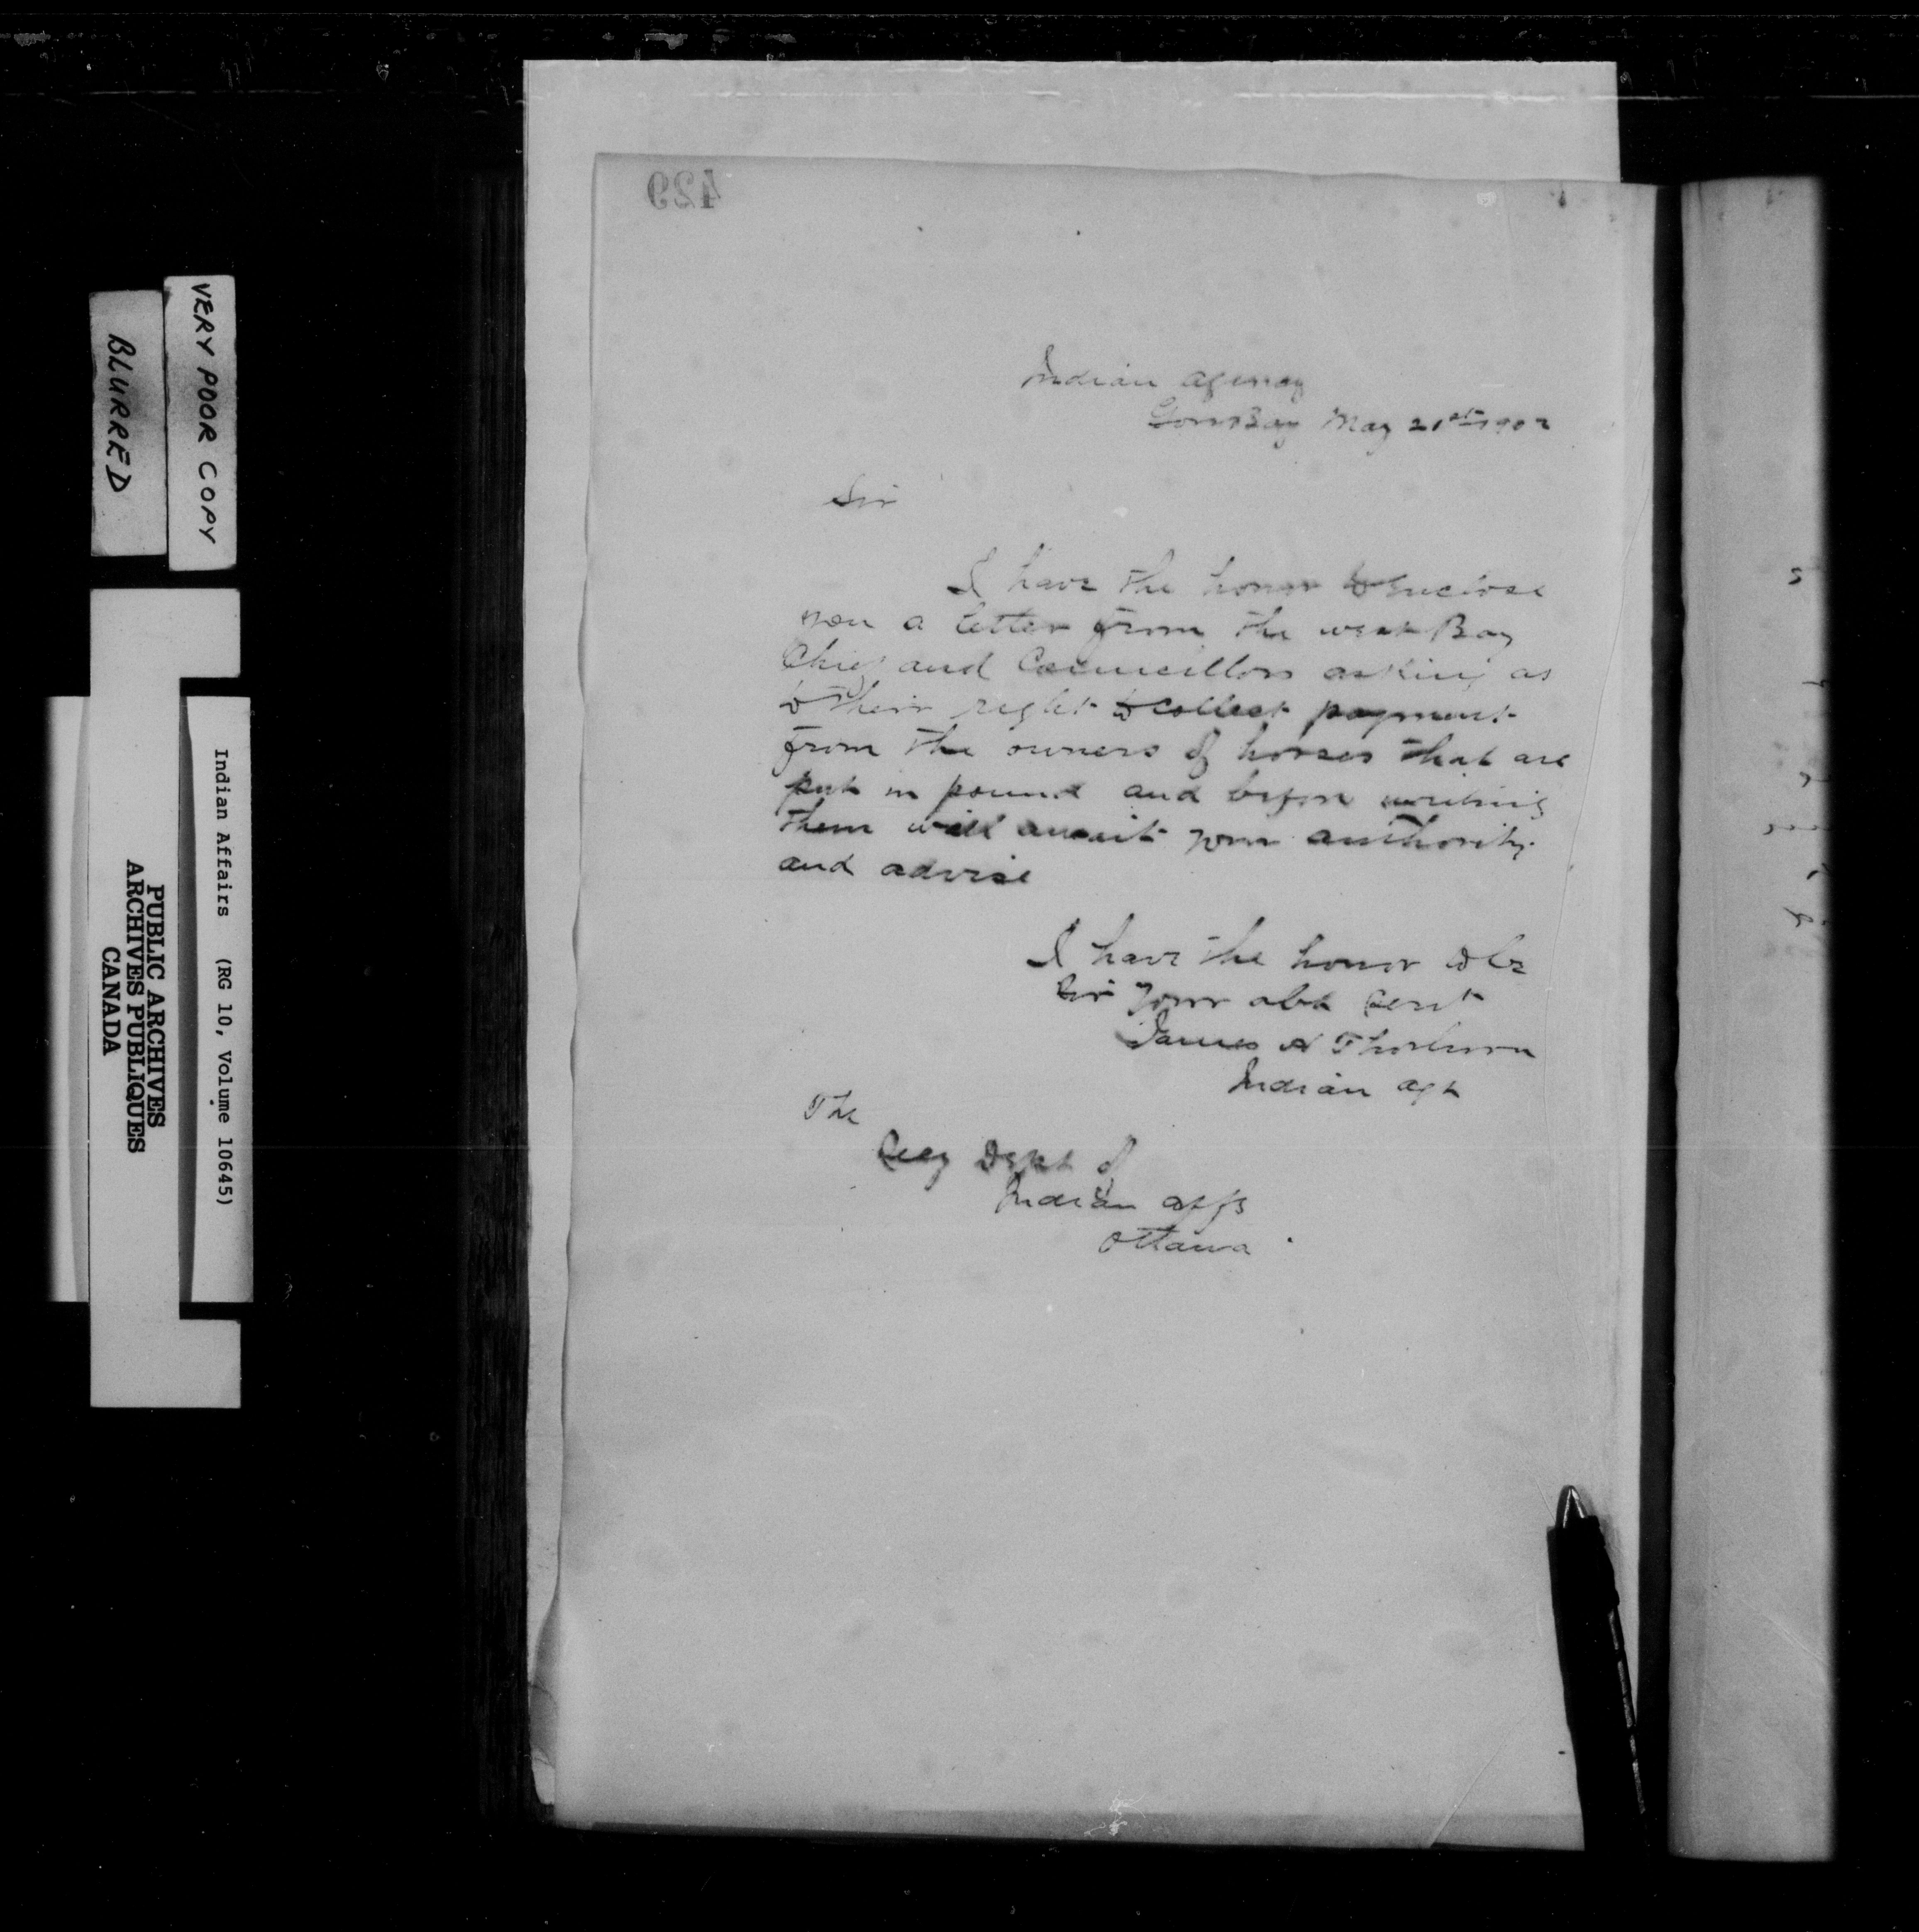 429
Indian Agency
Gore Bay May 21st 1902
Sir
I have the honor to enclose
you a letter from the West Bay
Chief and Councillors asking as
to their right to collect payment
from the owners of horses that are
put in pound and before writing
them will await your authority
and advise
I have the honor to be
Sir Your obt Servt
James H Thorburn
Indian Agt
The
Secy Dept of
Indian Affs
Ottawa
VERY POOR COPY
BLURRED
Indian Affairs (RG 10, Volume 10645)
PUBLIC ARCHIVES
ARCHIVES PUBLIQUES
CANADA